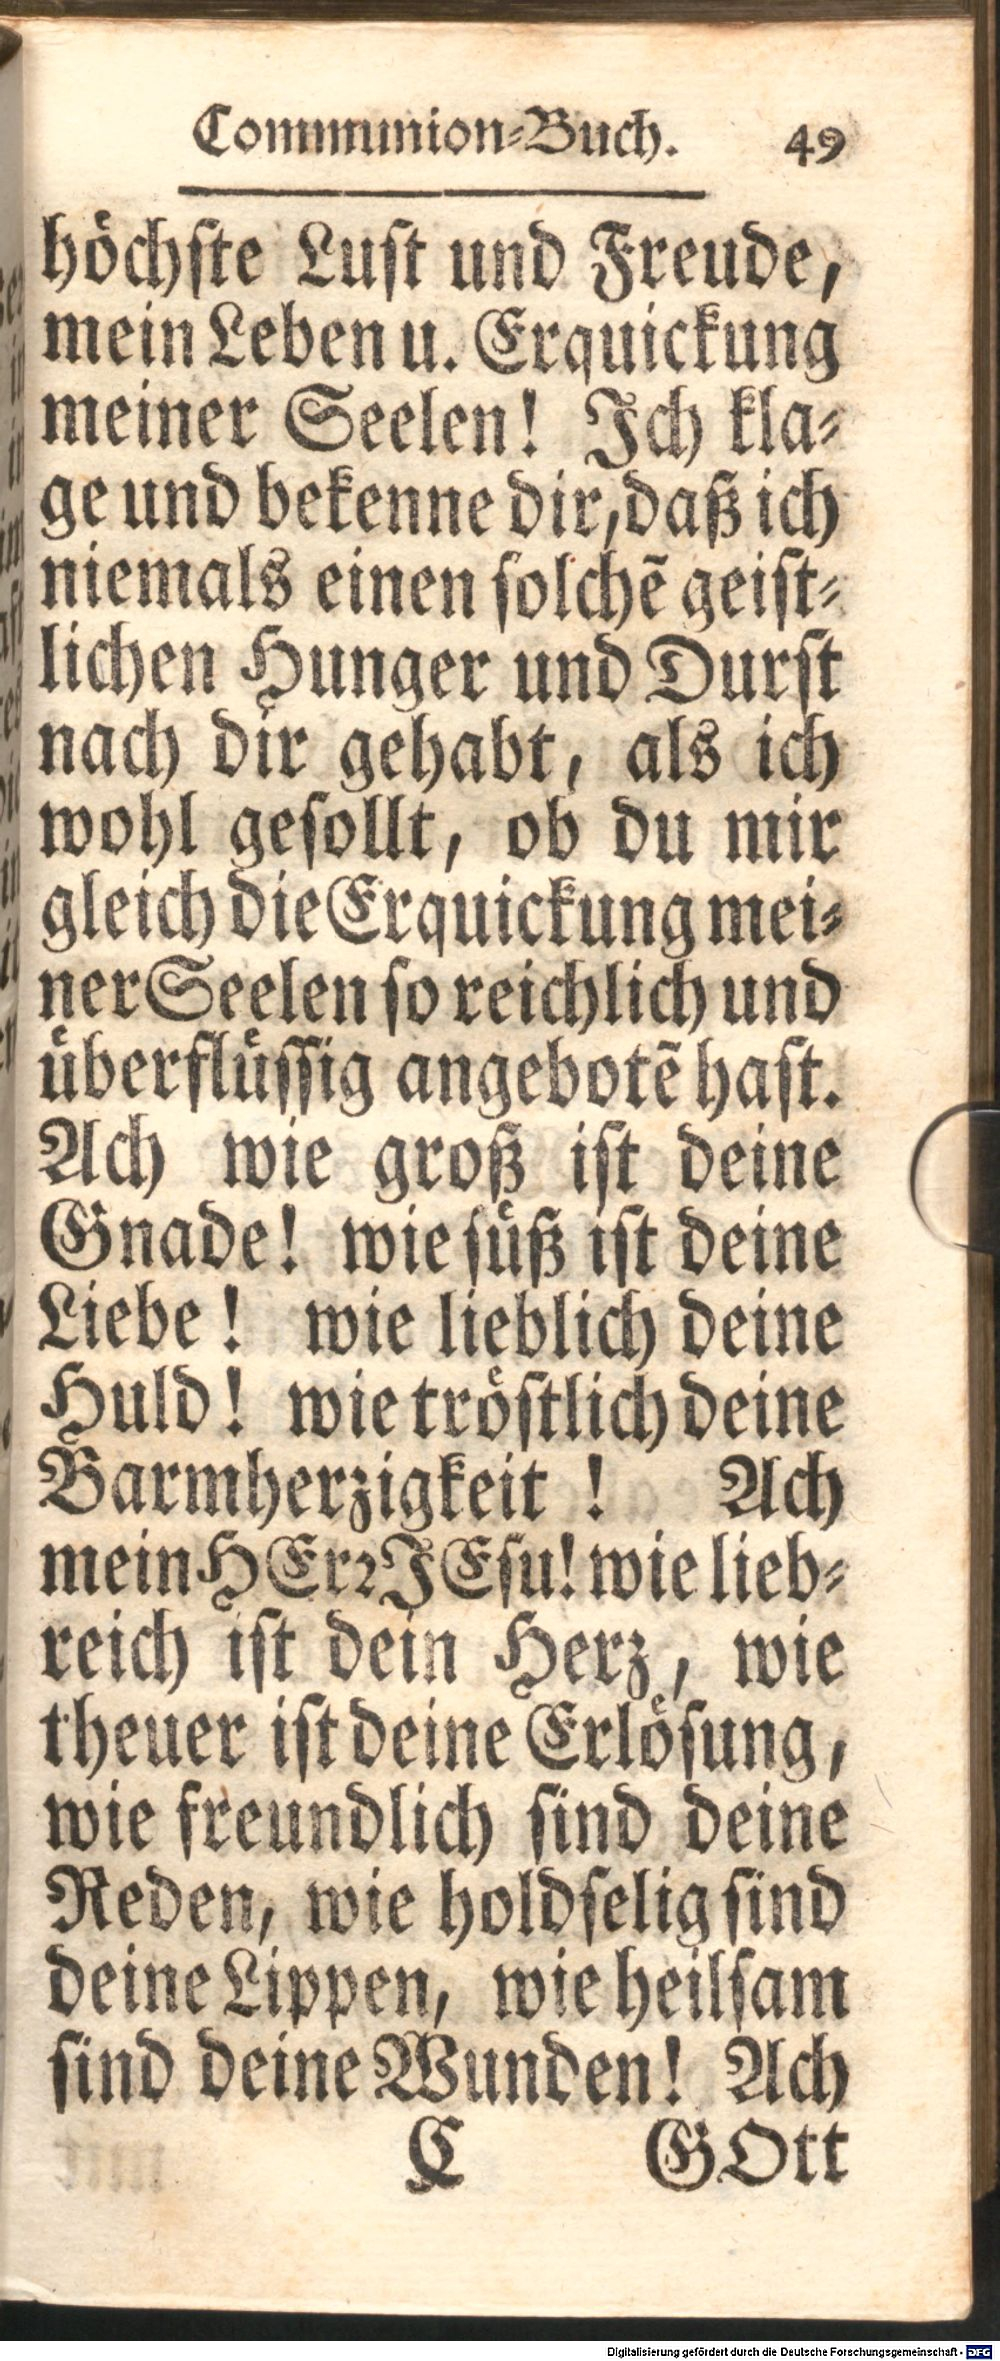 Communion-Buch. 49
höchste Lust und Freude,
mein Leben u. Erquickung
meiner Seelen! Ich kla-
ge und bekenne dir, daß ich
niemals einen solchẽ geist-
lichen Hunger und Durst
nach dir gehabt, als ich
wohl gesollt, ob du mir
gleich die Erquickung mei-
ner Seelen so reichlich und
überflüssig angebotẽ hast.
Ach wie groß ist deine
Gnade! wie süß ist deine
Liebe! wie lieblich deine
Huld! wie tröstlich deine
Barmherzigkeit! Ach
mein HErꝛ JEsu! wie lieb-
reich ist dein Herz, wie
theuer ist deine Erlösung,
wie freundlich sind deine
Reden, wie holdselig sind
deine Lippen, wie heilsam
sind deine Wunden! Ach
C GOtt
Digitalisierung gefördert durch die Deutsche Forschungsgemeinschaft - DFG